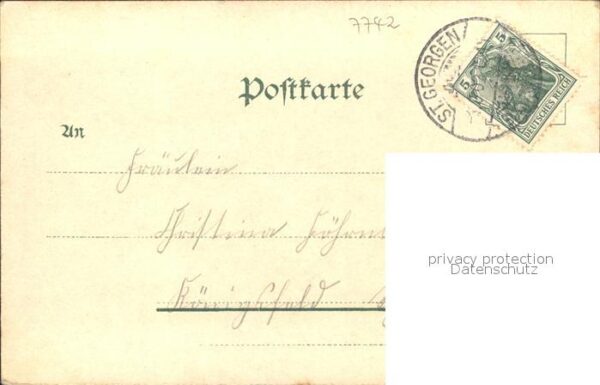 7742
ST. GEORGEN
5 5
DEUTSCHES REICH
Postkarte
An
Fräulein
Christina
privacy protection
Datenschutz
Königsfeld